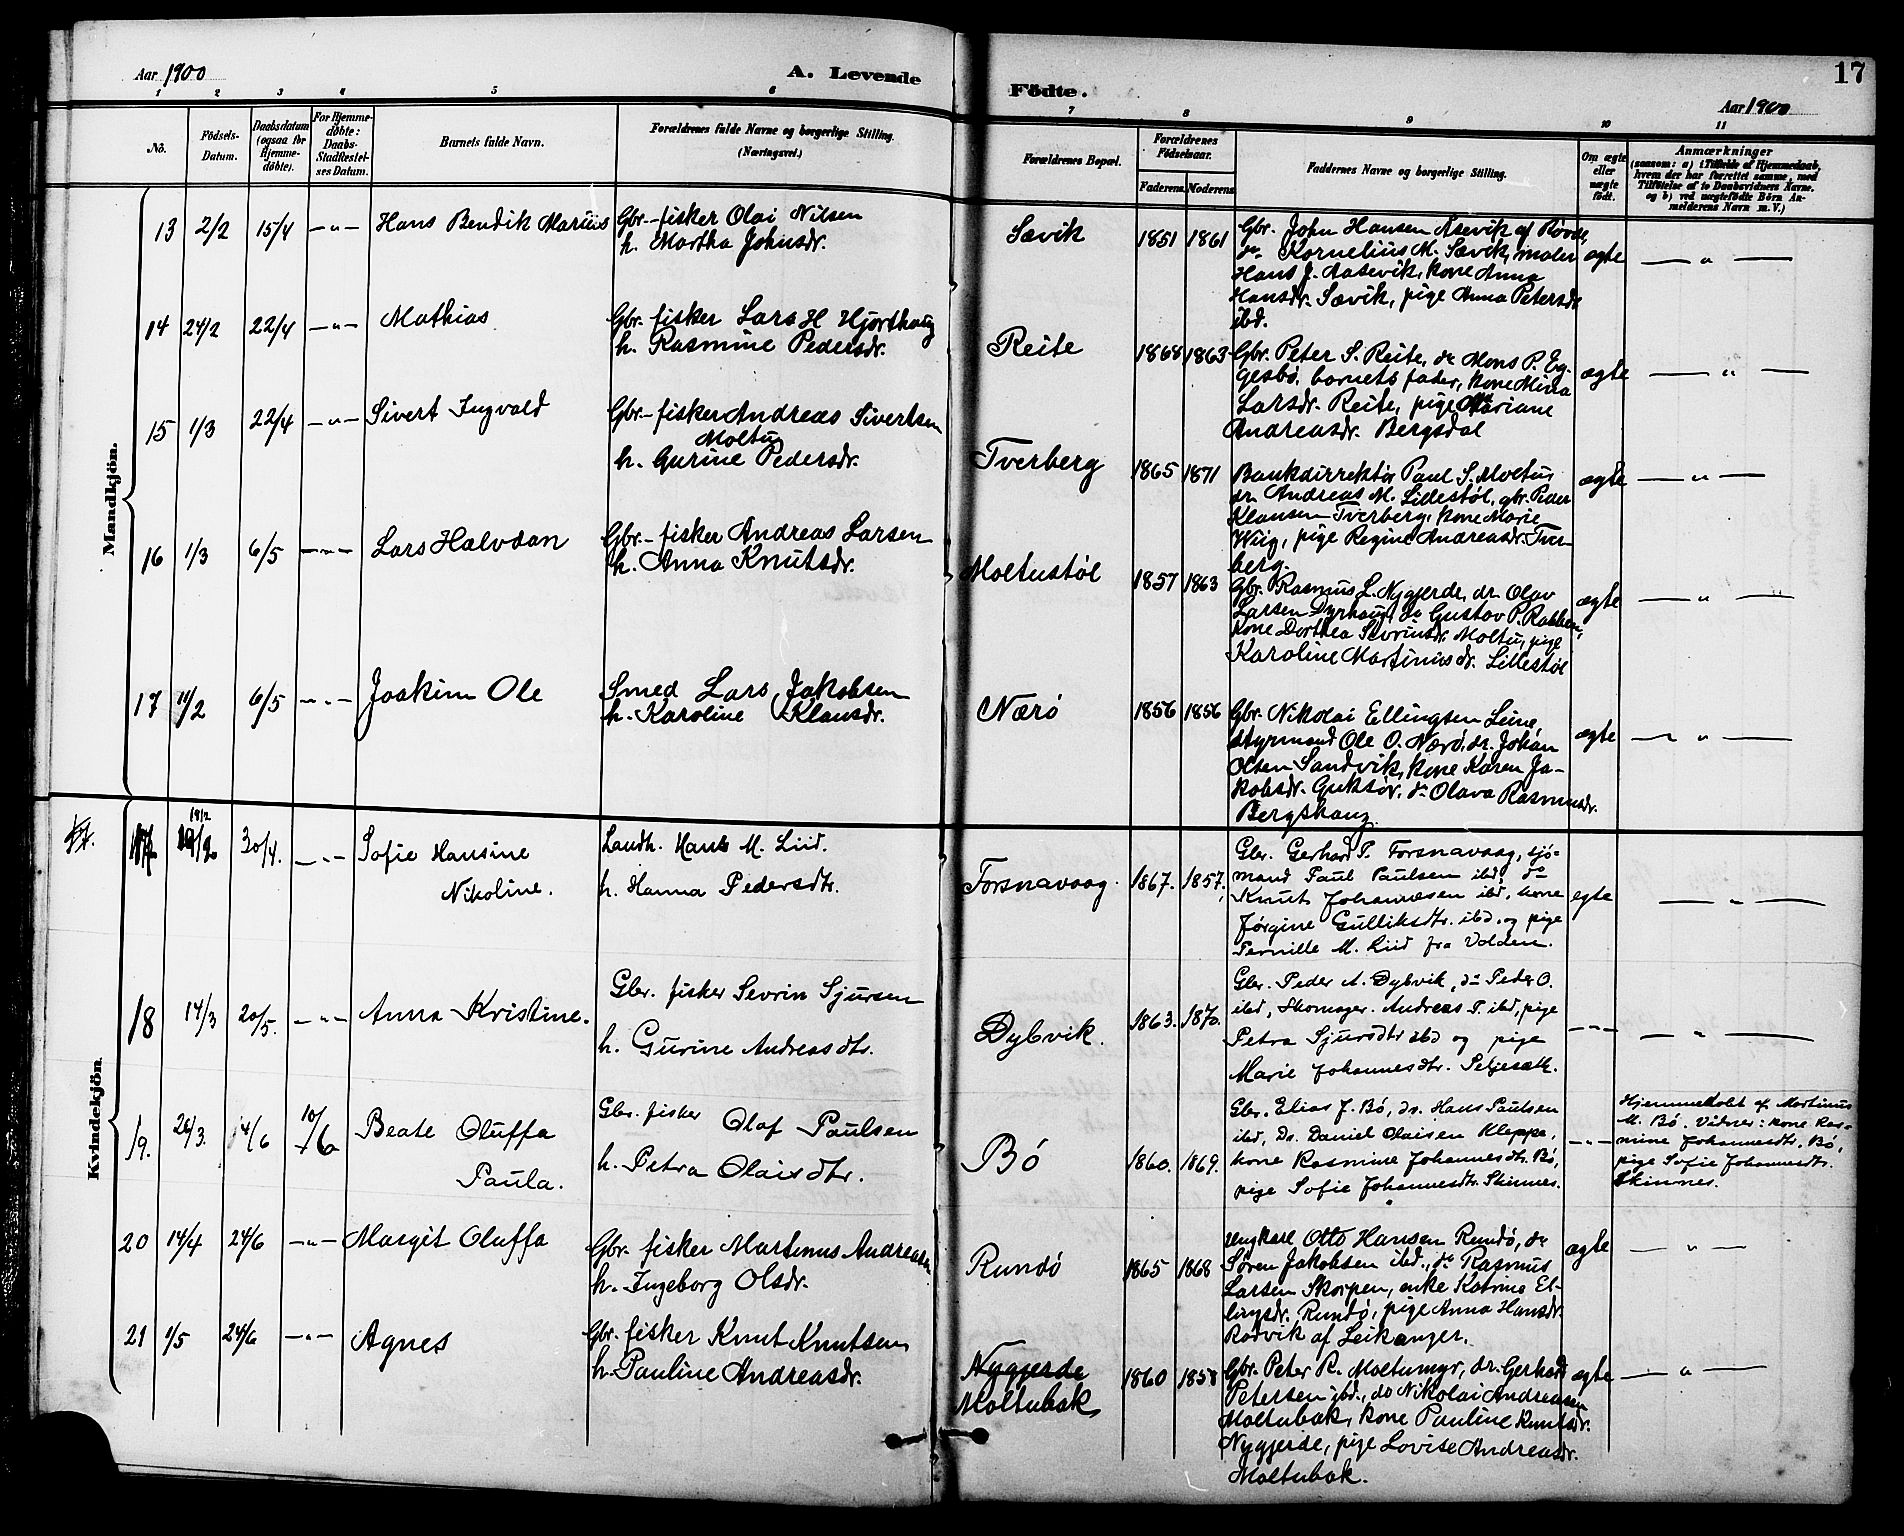 Aar 1900
A. Levende
Födte.
17
Aar 1900
1 2 3 4 5 6 7 8 9 10 11
Nö.
Födsels-
Datum.
Daabsdatum
(ogsaa for
Hjemme-
döbte).
For Hjemme-
döbte:
Daabs-
Stadfæstel-
ses Datum.
Barnets fulde Navn.
Forældrenes fulde Navne og borgerlige Stilling.
(Næringsvei.)
Forældrenes Bopæl.
Forældrenes
Födselsaar.
Faderens. Moderens.
Faddernes Navne og borgerlige Stilling.
Om ægte
eller
uægte
födt.
Anmærkninger
(saasom: a) i Tilfælde af Hjemmedaab,
hvem der har forrettet samme, med
Tilföielse af to Daabsvidners Navne.
og b) ved uægtefödte Börn An-
melderens Navn m. V.)
Mandkjön.
13 2/2 15/4 — " — Hans Bendik Marius
Gbr.-fisker Olai Nilsen
h. Martha Johnsdr.
Sævik 1851 1861
Gbr. John Hansen Aasevik af Rovde,
do. Kornelius M. Sævik, maler
Hans J. Aasevik, kone Anna
Hansdr. Sævik, pige Anna Petersdr
ibd.
ægte — " —
14 24/2 22/4 — " — Mathias
Gbr.-fisker Lars H Hjorthaug
h. Rasmine Pedersdr.
Reite 1868 1863
Gbr. Peter S. Reite, do Mons P. Eg-
gesbö, barnets fader, kone Mina
Larsdr. Reite, pige Mariane
Andreasdr. Bergsdal
ægte — " —
15 1/3 22/4 — " — Sivert Ingvald
Gbr.-fisker Andreas Sivertsen
Moltu
h. Gurine Pedersdr.
Tverberg 1865 1871
Bankdirrektör Paul S. Moltu,
dr. Andreas M. Lillestöl, gbr. Peder
Klausen Tverberg, kone Marie
Wiig, pige Regine Andreasdr. Tver-
berg.
ægte — " —
16 1/3 6/5 — " — Lars Halvdan
Gbr.-fisker Andreas Larsen
h. Anna Knutsdr.
Moltustöl 1857 1863
Gbr. Rasmus L. Nygjerde, dr. Olav
Larsen Dyrhaug, do Gustav P. Rabben,
kone Dorthea Sivrinsdr. Moltu, pige
Karoline Martinusdr. Lillestöl
ægte — " —
17 11/2 6/5 — " — Joakim Ole
Smed Lars Jakobsen
h. Karoline Klausdr.
Nærö 1856 1856
Gbr. Nikolai Ellingsen Leine,
styrmand Ole O. Nærö, dr. Johan
Olsen Sandvik, kone Karen Ja-
kobsdr. , do. Olava Rasmusdr.
Bergshaug.
ægte — " —
Kvindekjön
17. 18/2 30/4. — " — Sofie Hansine
Nikoline.
Landh. Hans M. Liid.
h. Hanna Pedersdtr.
Forsnavaag. 1867. 1857.
Gbr. Gerhard P. Forsnavaag, sjö-
mand Paul Paulsen ibd, do
Knut Johannesen ibd, kone
Jørgine Gulliksdtr. ibd. og pige
Pernille M. Liid fra Volden.
egte — " —
18 14/3 20/5. — " — Anna Kristine.
Gbr. fisker Sevrin Sjursen
h. Gurine Andreasdtr.
Dybvik. 1863. 1870.
Gbr. Peder A. Dybvik, do Peder O.
ibd, Skomager. Andreas P. ibd, pige
Petra Sjursdtr ibd og pige
Marie Johannesdtr. Seljesæth.
— " — — " —
19. 26/3. 14/6 10/6 Beate Oluffa
Paula.
Gbr. fisker Olaf Paulsen
h. Petra Olaisdtr.
Bö 1860. 1869.
Gbr. Elias J. Bö, do. Hans Paulsen
ibd, Do. Daniel Olaisen Kleppe,
kone Rasmine Johannesdtr. Bö,
pige Sofie Johannesdtr. Skinnes.
— " —
Hjemmedöbt af Martinus
M. Bö. Vidner: kone Ras-
mine Johannesdtr. Bö,
pige Sofie Johannesdtr.
Skinnes.
20 14/4 24/6 — " — Margit Oluffa
Gbr. fisker Martinus Andreasen
h. Ingeborg Olsdr.
Rundö 1865 1868
ungkarl Otto Hansen Rundö, do
Sören Jakobsen ibd., do. Rasmus
Larsen Skorpen, enke Katrine El-
lingsdr. Rundö, pige Anna Hansdr.
Rodvik af Leikanger.
ægte — " —
21 1/5 24/6 — " — Agnes
Gbr. fisker Knut Knutsen
h. Pauline Andreasdr.
Nygjerde
Moltubak 1860 1858
Gbr. Peter R. Moltumyr, dr. Gerhard
Petersen ibd., do Nikolai Andreasen
Moltubak, kone Pauline Knutsdr.
Nygjerde, pige Lovise Andreasdr.
Moltubak.
ægte — " —